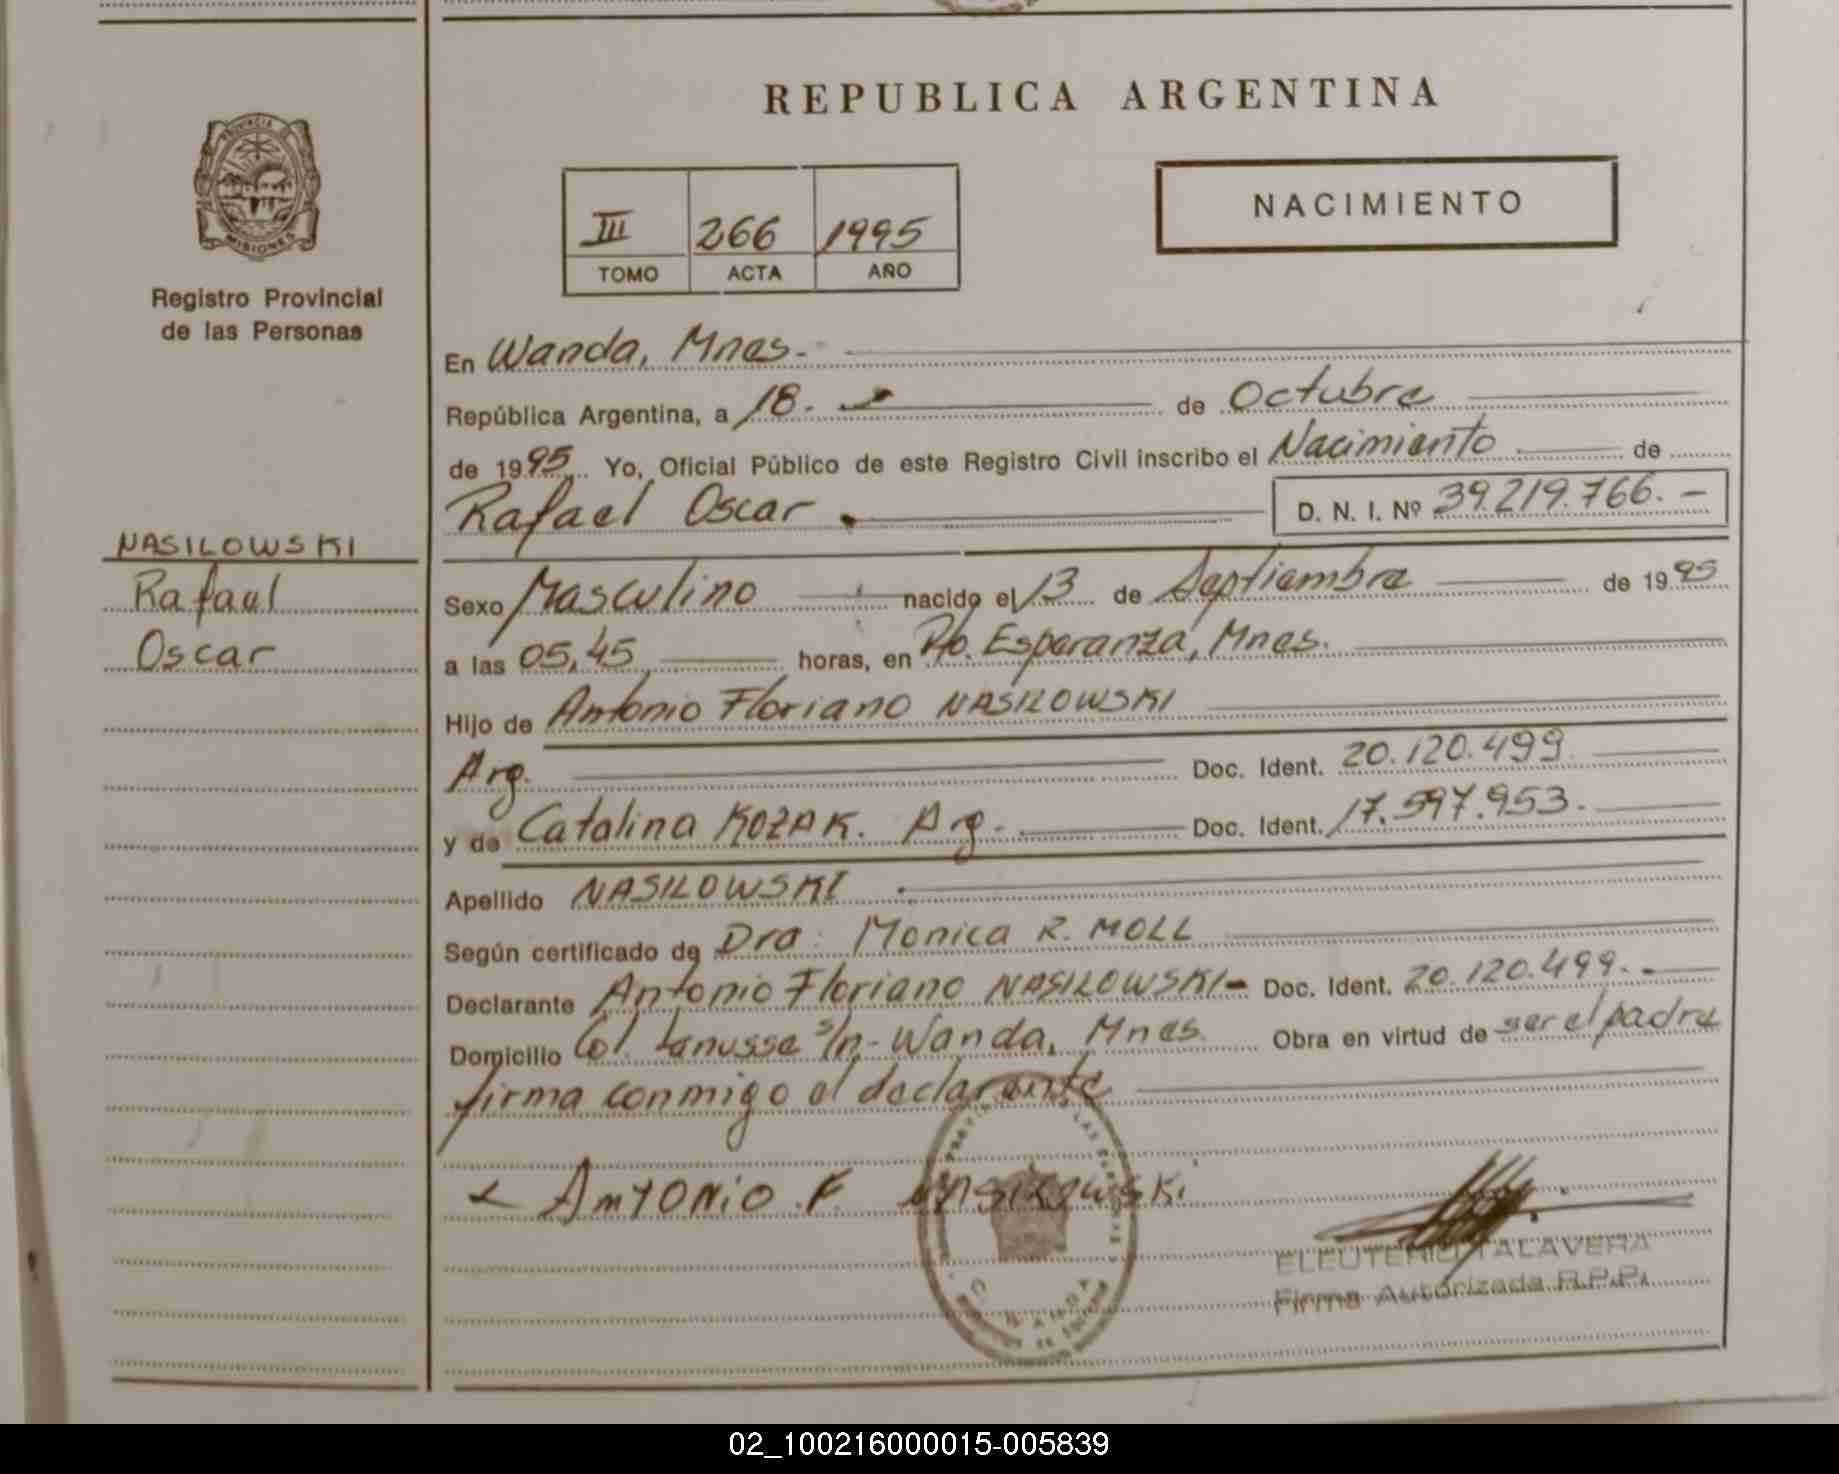 REPUBLICA ARGENTINA
PROVINCIA DE
MISIONES
Registro Provincial
de las Personas
III 266 1995
TOMO ACTA AÑO
NACIMIENTO
En Wanda, Mnes.-
República Argentina, a 18.- de Octubre
de 1995 Yo, Oficial Público de este Registro Civil inscribo el Nacimiento de
Rafael Oscar D. N. I. Nº 39.219.766.-
NASILOWSKI
Rafael
Oscar
Sexo Masculino nacido el 13 de Septiembre de 1995
a las 05,45 horas, en Pto. Esperanza, Mnes.
Hijo de Antonio Floriano NASILOWSKI
Arg. Doc. Ident. 20.120.499
y de Catalina KOZAK. Arg.- Doc. Ident. 17.597.953.-
Apellido NASILOWSKI
Según certificado de Dra. Monica R. MOLL
Declarante Antonio Floriano NASILOWSKI- Doc. Ident. 20.120.499.-
Domicilio Col. Lanusse s/n- Wanda, Mnes. Obra en virtud de ser el padre
firma conmigo el declarante
Antonio F. Nasilowski
ELEUTERIO TALAVERA
Firma Autorizada R.P.P.
02_100216000015-005839